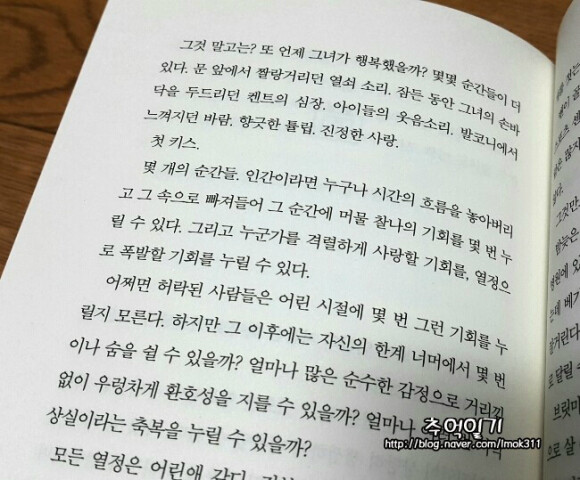 그것 말고는? 또 언제 그녀가 행복했을까? 몇몇 순간들이 더
있다. 문 앞에서 짤랑거리던 열쇠 소리. 잠든 동안 그녀의 손바
닥을 두드리던 켄트의 심장. 아이들의 웃음소리. 발코니에서
느껴지던 바람. 향긋한 튤립. 진정한 사랑.
첫 키스.
몇 개의 순간들. 인간이라면 누구나 시간의 흐름을 놓아버리
고 그 속으로 빠져들어 그 순간에 머물 찰나의 기회를 몇 번 누
릴 수 있다. 그리고 누군가를 격렬하게 사랑할 기회를, 열정으
로 폭발할 기회를 누릴 수 있다.
어쩌면 허락된 사람들은 어린 시절에 몇 번 그런 기회를 누
릴지 모른다. 하지만 그 이후에는 자신의 한계 너머에서 몇 번
이나 숨을 쉴 수 있을까? 얼마나 많은 순수한 감정으로 거리낌
없이 우렁차게 환호성을 지를 수 있을까? 얼마나
상실이라는 축복을 누릴 수 있을까?
모든 열정은 어린애 같다.
추억일기
http://blog.naver.com/lmok311
그것만
밤늦은
병원에 있
는데 베가
달거린다
로 달릴
브릿마
으로 살